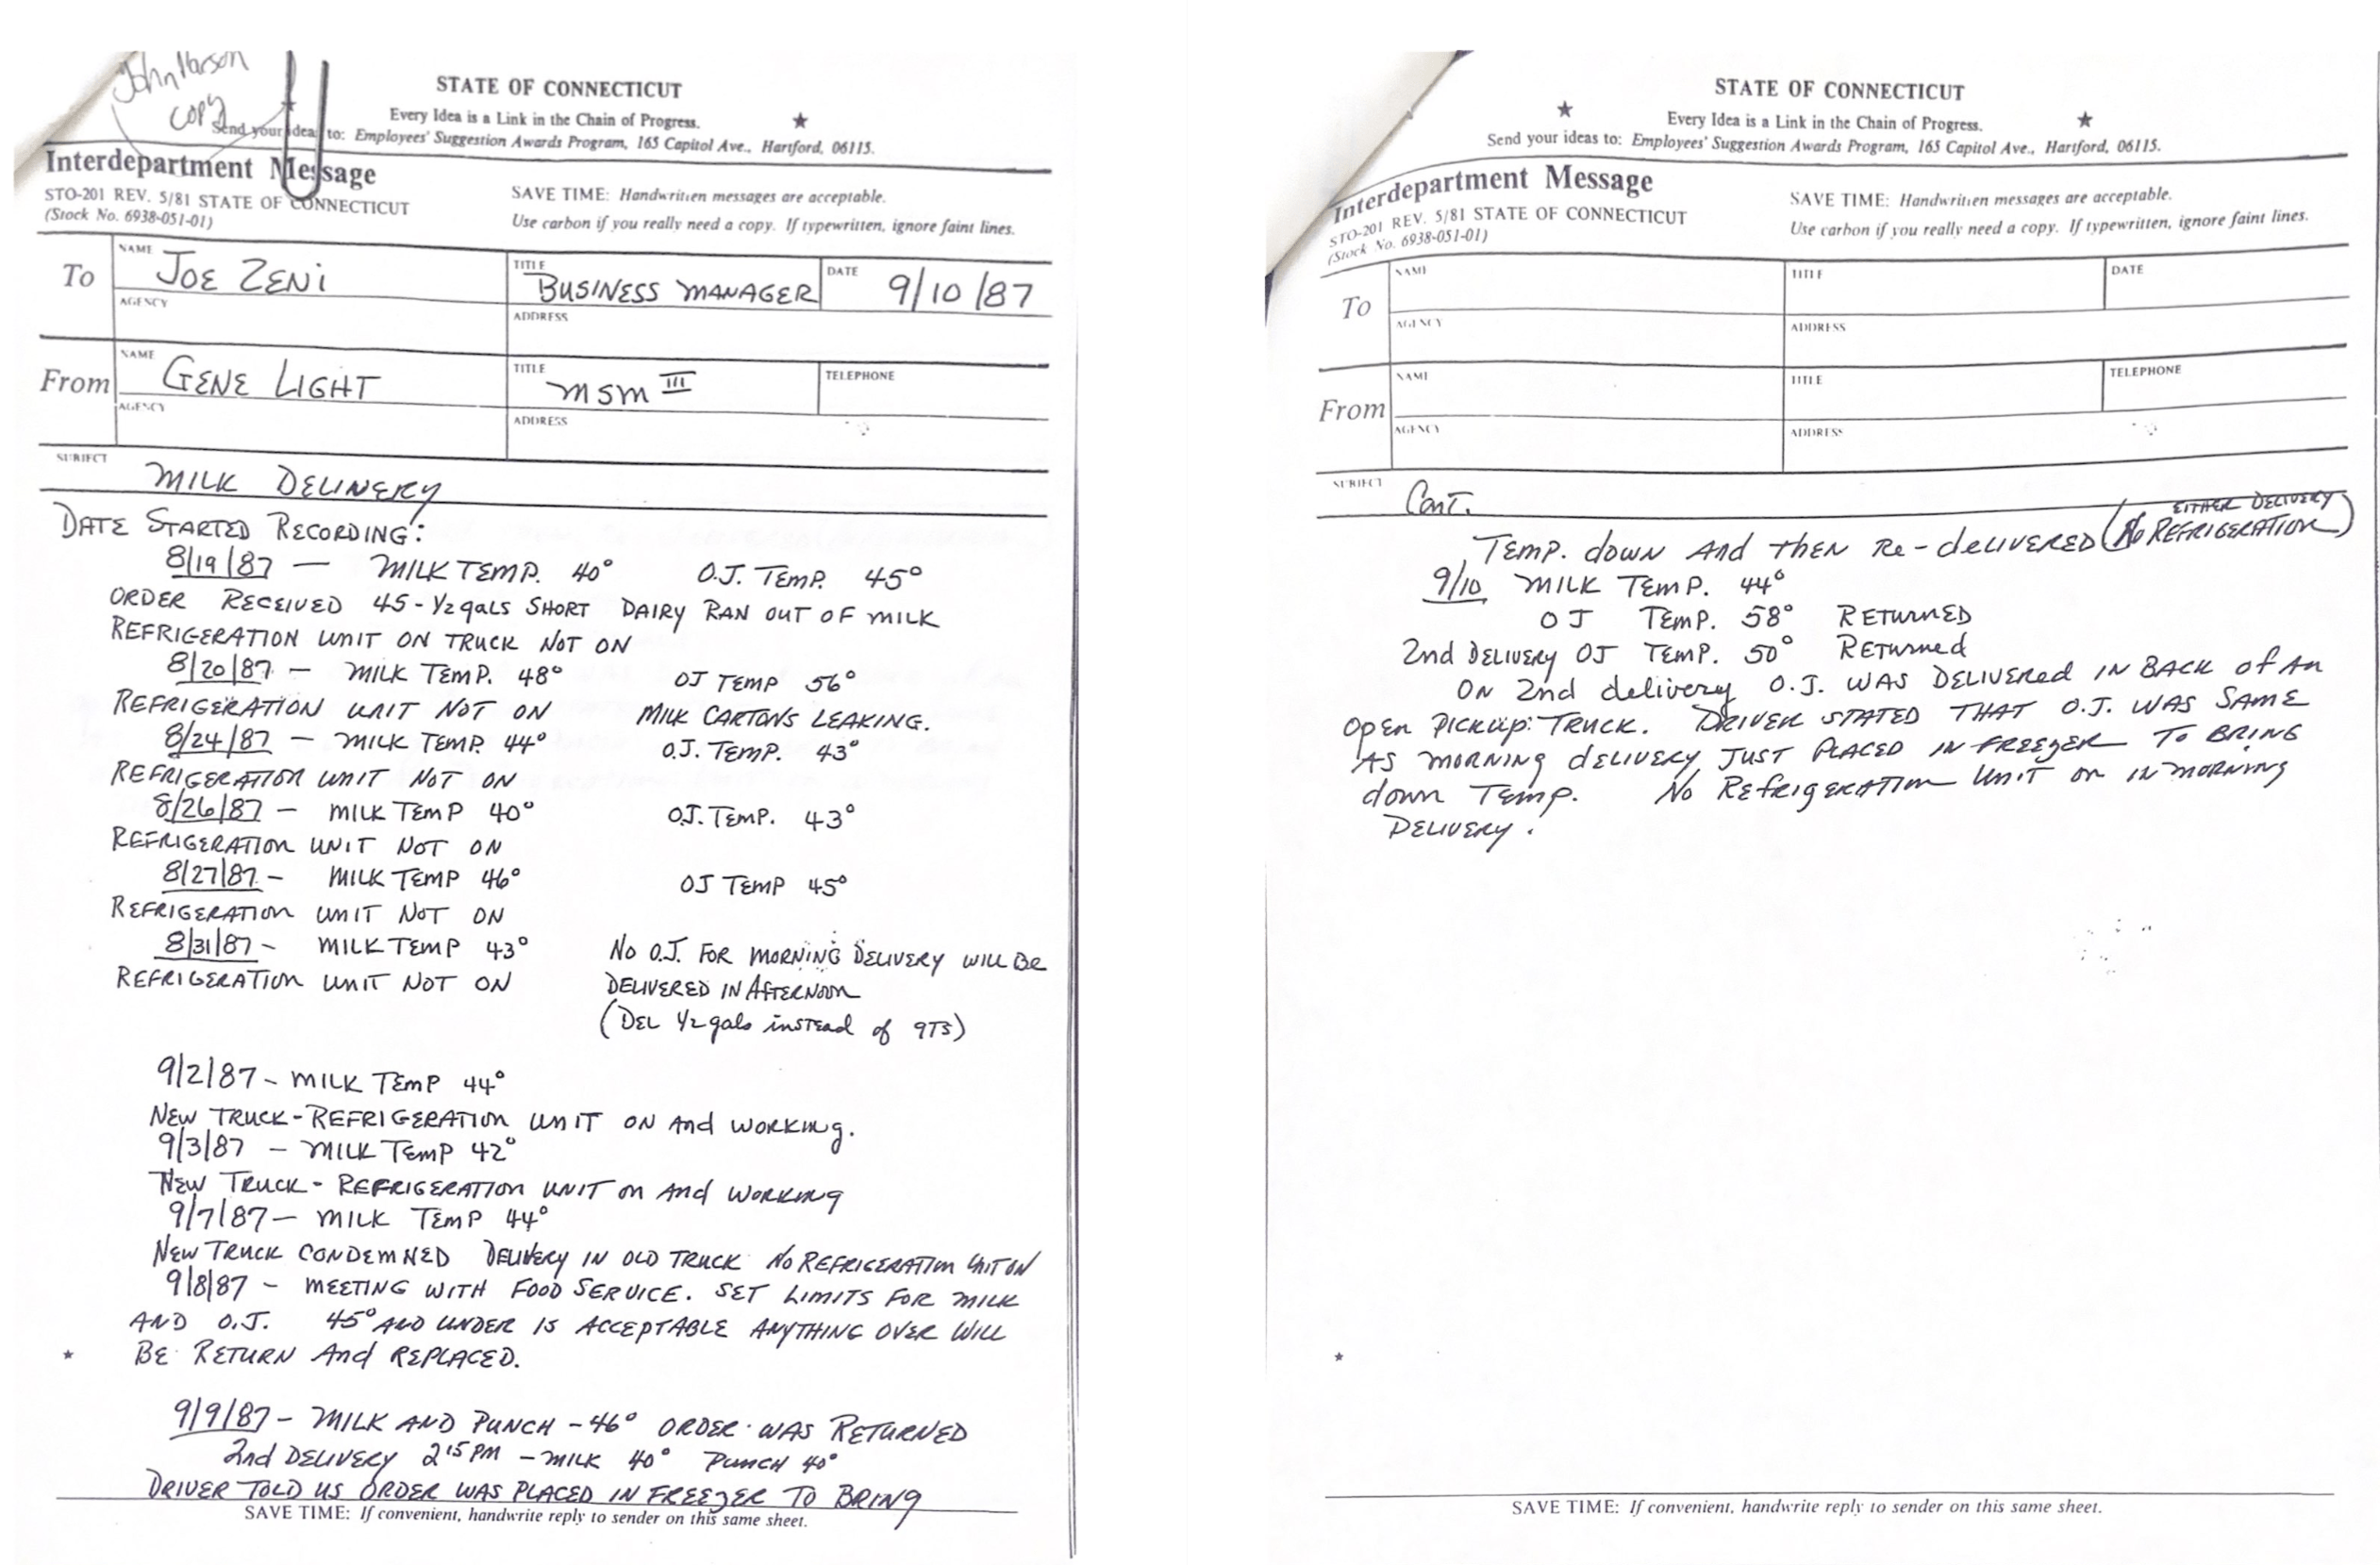 John Larson
copy
STATE OF CONNECTICUT
Every Idea is a Link in the Chain of Progress.
Send your ideas to: Employees' Suggestion Awards Program, 165 Capitol Ave., Hartford, 06115.
Interdepartment Message
STO-201 REV. 5/81 STATE OF CONNECTICUT
(Stock No. 6938-051-01)
SAVE TIME: Handwritten messages are acceptable.
Use carbon if you really need a copy. If typewritten, ignore faint lines.
To
NAME
JOE ZENI
TITLE
BUSINESS MANAGER
DATE
9/10/87
AGENCY
ADDRESS
From
NAME
GENE LIGHT
TITLE
MSM III
TELEPHONE
AGENCY
ADDRESS
SUBJECT
MILK DELIVERY
DATE STARTED RECORDING:
8/19/87 — MILK TEMP. 40° O.J. TEMP. 45°
ORDER RECEIVED 45-1/2 gals SHORT DAIRY RAN OUT OF MILK
REFRIGERATION UNIT ON TRUCK NOT ON
8/20/87 — MILK TEMP. 48° OJ TEMP 56°
REFRIGERATION UNIT NOT ON MILK CARTONS LEAKING.
8/24/87 — MILK TEMP. 44° O.J. TEMP. 43°
REFRIGERATION UNIT NOT ON
8/26/87 — MILK TEMP 40° O.J. TEMP. 43°
REFRIGERATION UNIT NOT ON
8/27/87 - MILK TEMP 46° OJ TEMP 45°
REFRIGERATION UNIT NOT ON
8/31/87 - MILK TEMP 43° NO O.J. FOR MORNING DELIVERY WILL BE
REFRIGERATION UNIT NOT ON DELIVERED IN AFTERNOON
(DEL 1/2 gals instead of qTs)
9/2/87 - MILK TEMP 44°
NEW TRUCK - REFRIGERATION UNIT ON And WORKING.
9/3/87 - MILK TEMP 42°
NEW TRUCK - REFRIGERATION UNIT ON And WORKING
9/7/87 — MILK TEMP 44°
NEW TRUCK CONDEMNED DELIVERY IN OLD TRUCK NO REFRIGERATION UNIT ON
9/8/87 - MEETING WITH FOOD SERVICE. SET LIMITS FOR MILK
AND O.J. 45° AND UNDER IS ACCEPTABLE ANYTHING OVER WILL
BE RETURN And REPLACED.
9/9/87 - MILK AND PUNCH - 46° ORDER WAS RETURNED
2nd DELIVERY 2 15 PM - MILK 40° PUNCH 40°
DRIVER TOLD US ORDER WAS PLACED IN FREEZER TO BRING
SAVE TIME: If convenient, handwrite reply to sender on this same sheet.
STATE OF CONNECTICUT
Every Idea is a Link in the Chain of Progress.
Send your ideas to: Employees' Suggestion Awards Program, 165 Capitol Ave., Hartford, 06115.
Interdepartment Message
STO-201 REV. 5/81 STATE OF CONNECTICUT
(Stock No. 6938-051-01)
SAVE TIME: Handwritten messages are acceptable.
Use carbon if you really need a copy. If typewritten, ignore faint lines.
To
NAME
TITLE
DATE
AGENCY
ADDRESS
From
NAME
TITLE
TELEPHONE
AGENCY
ADDRESS
SUBJECT
Cont.
EITHER DELIVERY
Temp. down And then Re-delivered (No REFRIGERATION)
9/10 MILK TEMP. 44°
OJ TEMP. 58° RETURNED
2nd DELIVERY OJ TEMP. 50° RETURNED
ON 2nd delivery O.J. WAS DELIVERED IN BACK of AN
OPEN PICKUP TRUCK. DRIVER STATED THAT O.J. WAS SAME
AS MORNING delivery JUST PLACED IN FREEZER TO BRING
down Temp. No Refrigeration Unit on in morning
DELIVERY.
SAVE TIME: If convenient, handwrite reply to sender on this same sheet.